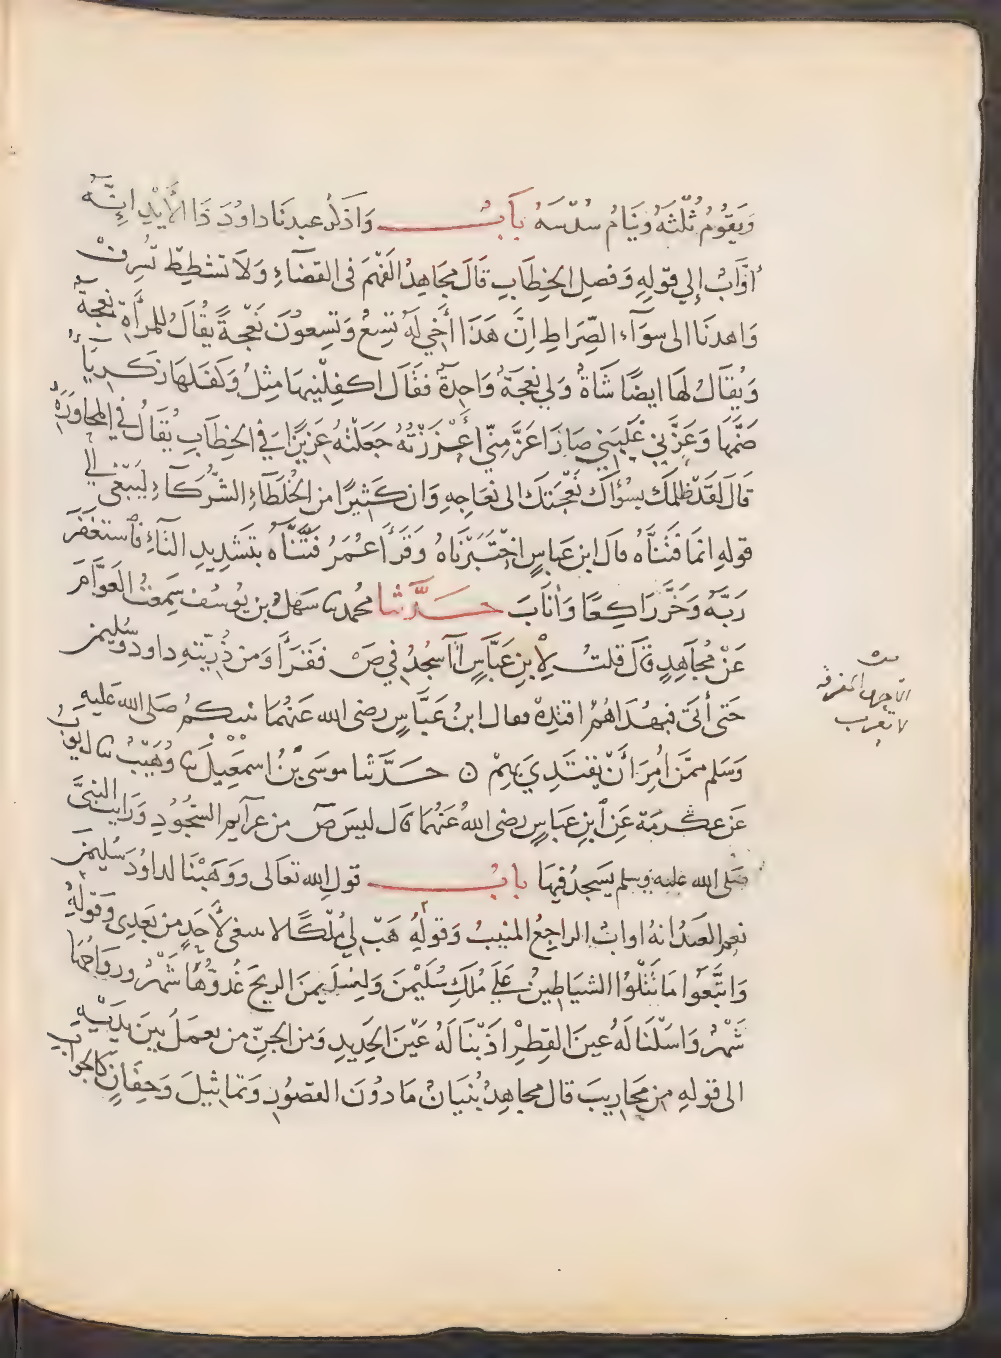 وَيَقُومُ ثُلُثَهُ وَيَنَامُ سُدُسَهُ بَابُ وَاذْكُرْ عبدنَا داوُدَ ذَا الأَيْدِ اِنَّهُ
أوَّابٌ إلى قَوْلِهِ وَفصلَ الخِطَابِ قَالَ مجَاهِدُ الفَهْمَ فى القضَآءِ وَلَا تشْطِطْ تُسْرِفْ
وَاهدنَا الى سوَآءِ الصِّرَاطِ اِنَّ هَذَا أَخِي لَهُ تِسْعٌ وَتِسعُونَ نَعْجَةً يُقَالُ للمرأَةِ نعجةٌ
وَيُقَالُ لهَا ايضًا شَاةٌ وَلِي نعجَةٌ وَاحِدةٌ فقَالَ اكفِلْنِيهَا مِثْلُ وَكَفَلَهَا زكَرِيَّآءُ
ضَمَّهَا وَعَزَّنِي غَلَبَنِي صَارَ اَعَزَّ مِنِّي أَعْزَزْتُهُ جَعَلْتُهُ عَزِيزًا فِي الخِطَابِ يُقَالُ فِي المحَاوَرَةِ
قَالَ لقَدْ ظلمَكَ بسُؤَالِ نَعْجَتكَ الى نعَاجِهِ وَان كَثِيرًا من الخُلَطَآءِ الشُّرَكَآءِ لَيَبْغِى الى
قولهِ انمَا فَتَنَّاهُ قال ابن عَبَاسٍ اخْتَبَرْنَاهُ وَقَرَأَ عُمَرُ فَتَّنَّاهُ بتَشْدِيدِ التَّآءِ فَاستَغْفَرَ
رَبَّهُ وَخَرَّ رَاكِعًا وَأنَابَ حَدَّثنا محمد ثنا سَهْلُ بن يوسُف سَمِعْتُ العَوَّامَ
عَنْ مُجَاهِدٍ قَالَ قلتُ لِابْنِ عَبَّاسٍ أَأَسْجُدُ فِي صَ فقَرَأَ وَمن ذُرِّيَّتِهِ داود وَسُليمن
حَتى أَتَى فَبِهُدَاهُمُ اقتدِهْ فقال ابنُ عَبَّاسٍ رضى الله عَنْهُمَا نبيكُمْ صَلى الله عَليهِ
وَسَلم ممَّنْ اُمِرَ أَنْ يَقْتَدِيَ بهِمْ ۝ حَدَّثنا موسَى بْنُ اسمعِيْلَ ثنا وُهَيْبٌ ثنا ايوُبُ
عَن عكرمَة عَنِ ابْنِ عبَاسٍ رضى الله عَنْهُمَا قال ليسَ صَ من عزَآيم السُّجُودِ وَرَايتُ النبيَّ
صَلى الله عليهِ وسلم يَسجدُ فِيهَا بابُ قولِ الله تعَالى وَوَهَبْنَا لداوُدَ سُليمنَ
نعم العَبدُ انهُ اوابٌ الراجِعُ المنيبُ وَقولُهُ هَبْ لِي مُلْكًا لا ينبغى لأَحَدٍ من بَعدِى وَقولُهُ
وَاتَّبَعُوا مَا تَتْلُوا الشيَاطِينُ عَلَى مُلكِ سُلَيْمنَ وَلِسُلَيمنَ الريحَ غُدُوُّهَا شَهْرٌ وَرَوَاحُهَا
شَهْرٌ وَاَسَلْنَا لَهُ عينَ القِطْرِ اَذَبْنَا لَهُ عَيْنَ الحَدِيدِ وَمن الجنِّ من يعمَلُ بينَ يدَيْهِ
الى قولهِ من مَحَاريبَ قال مجاهِدٌ بُنيَانٌ مَا دوُنَ القصُورِ وَتمَاثيلَ وَجِفَانٍ كالجوَابِ